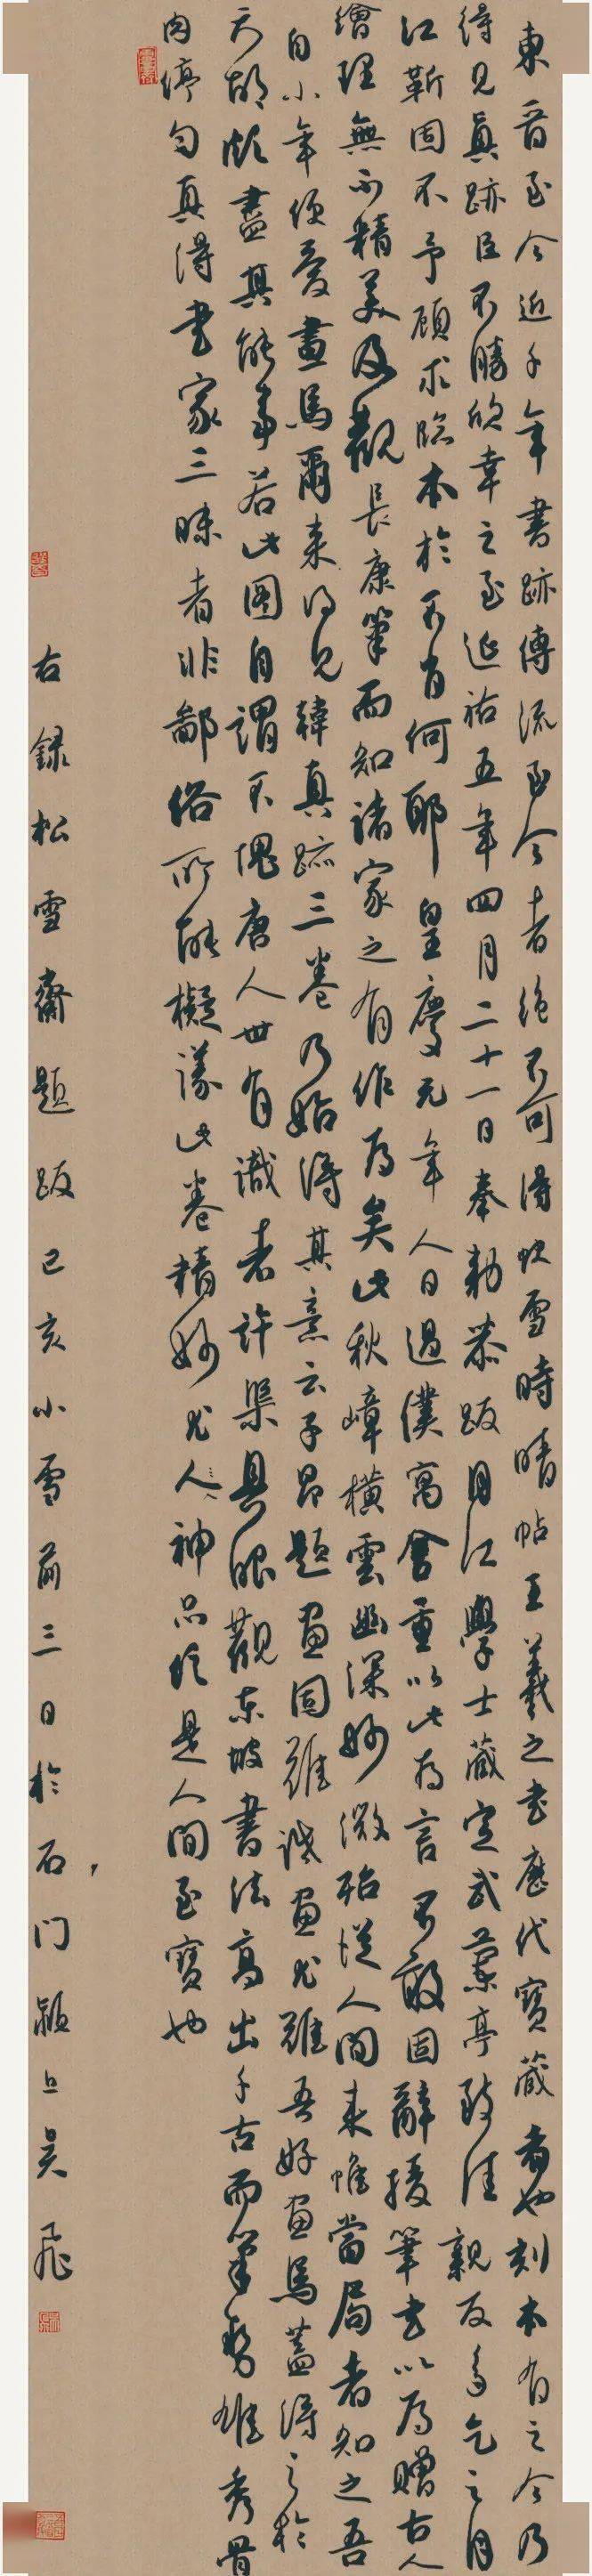 東晉至今近千年書跡傳流至今者絕不可得快雪時晴帖王羲之書歷代寶藏者也刻本有之今乃
得見真跡臣不勝欣幸之至延祐五年四月二十一日奉勅恭跋月江學士藏定武蘭亭致佳親友多乞之月
江靳固不予顧求臨本於不肖何耶皇慶元年人日過僕寓舍重以此為言不敢固辭援筆書以為贈古人
繪理無不精美及觀長康筆而知諸家之有作為矣此秋嶂橫雲幽深妙微殆從人間來惟當局者知之吾
自小年便愛畫馬爾來得見韓真跡三卷乃始得其意云子昂題畫固難誠畫尤難吾好畫馬蓋得之於
天故頗盡其能事若此圖自謂不愧唐人世有識者許渠具眼觀東坡書法高出千古而筆勢雄秀骨
肉停勻真得書家三昧者非鄙俗所能擬議此卷精妙尤人神品信是人間至寶也
右錄松雪齋題跋己亥小雪前三日於石门潁上吴飛